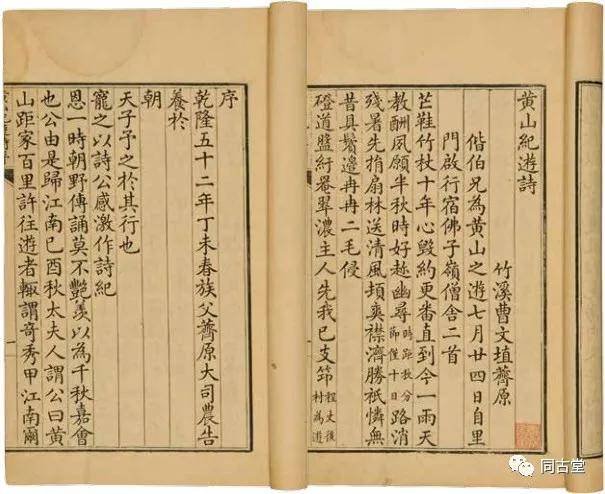 黄山紀遊詩
竹溪曹文埴薺原
偕伯兄為黄山之遊七月廿四日自里
門啟行宿佛子嶺僧舍二首
芒鞋竹杖十年心毀約更番直到今一雨天
教酬夙願半秋時好趂幽尋時距秋分節僅十日路消
殘暑先捎扇林送清風頓爽襟濟勝祇憐無
昔具鬂邊冉冉二毛侵
磴道盤紆罨翠濃主人先我已支筇程丈後村為遊
序
乾隆五十二年丁未春族父薺原大司農告
養於
朝
天子予之於其行也
寵之以詩公感激作詩紀
恩一時朝野傳誦莫不艷羨以為千秋嘉會
也公由是歸江南己酉秋太夫人謂公曰黄
山距家百里許往遊者輙謂奇秀甲江南爾
同古堂